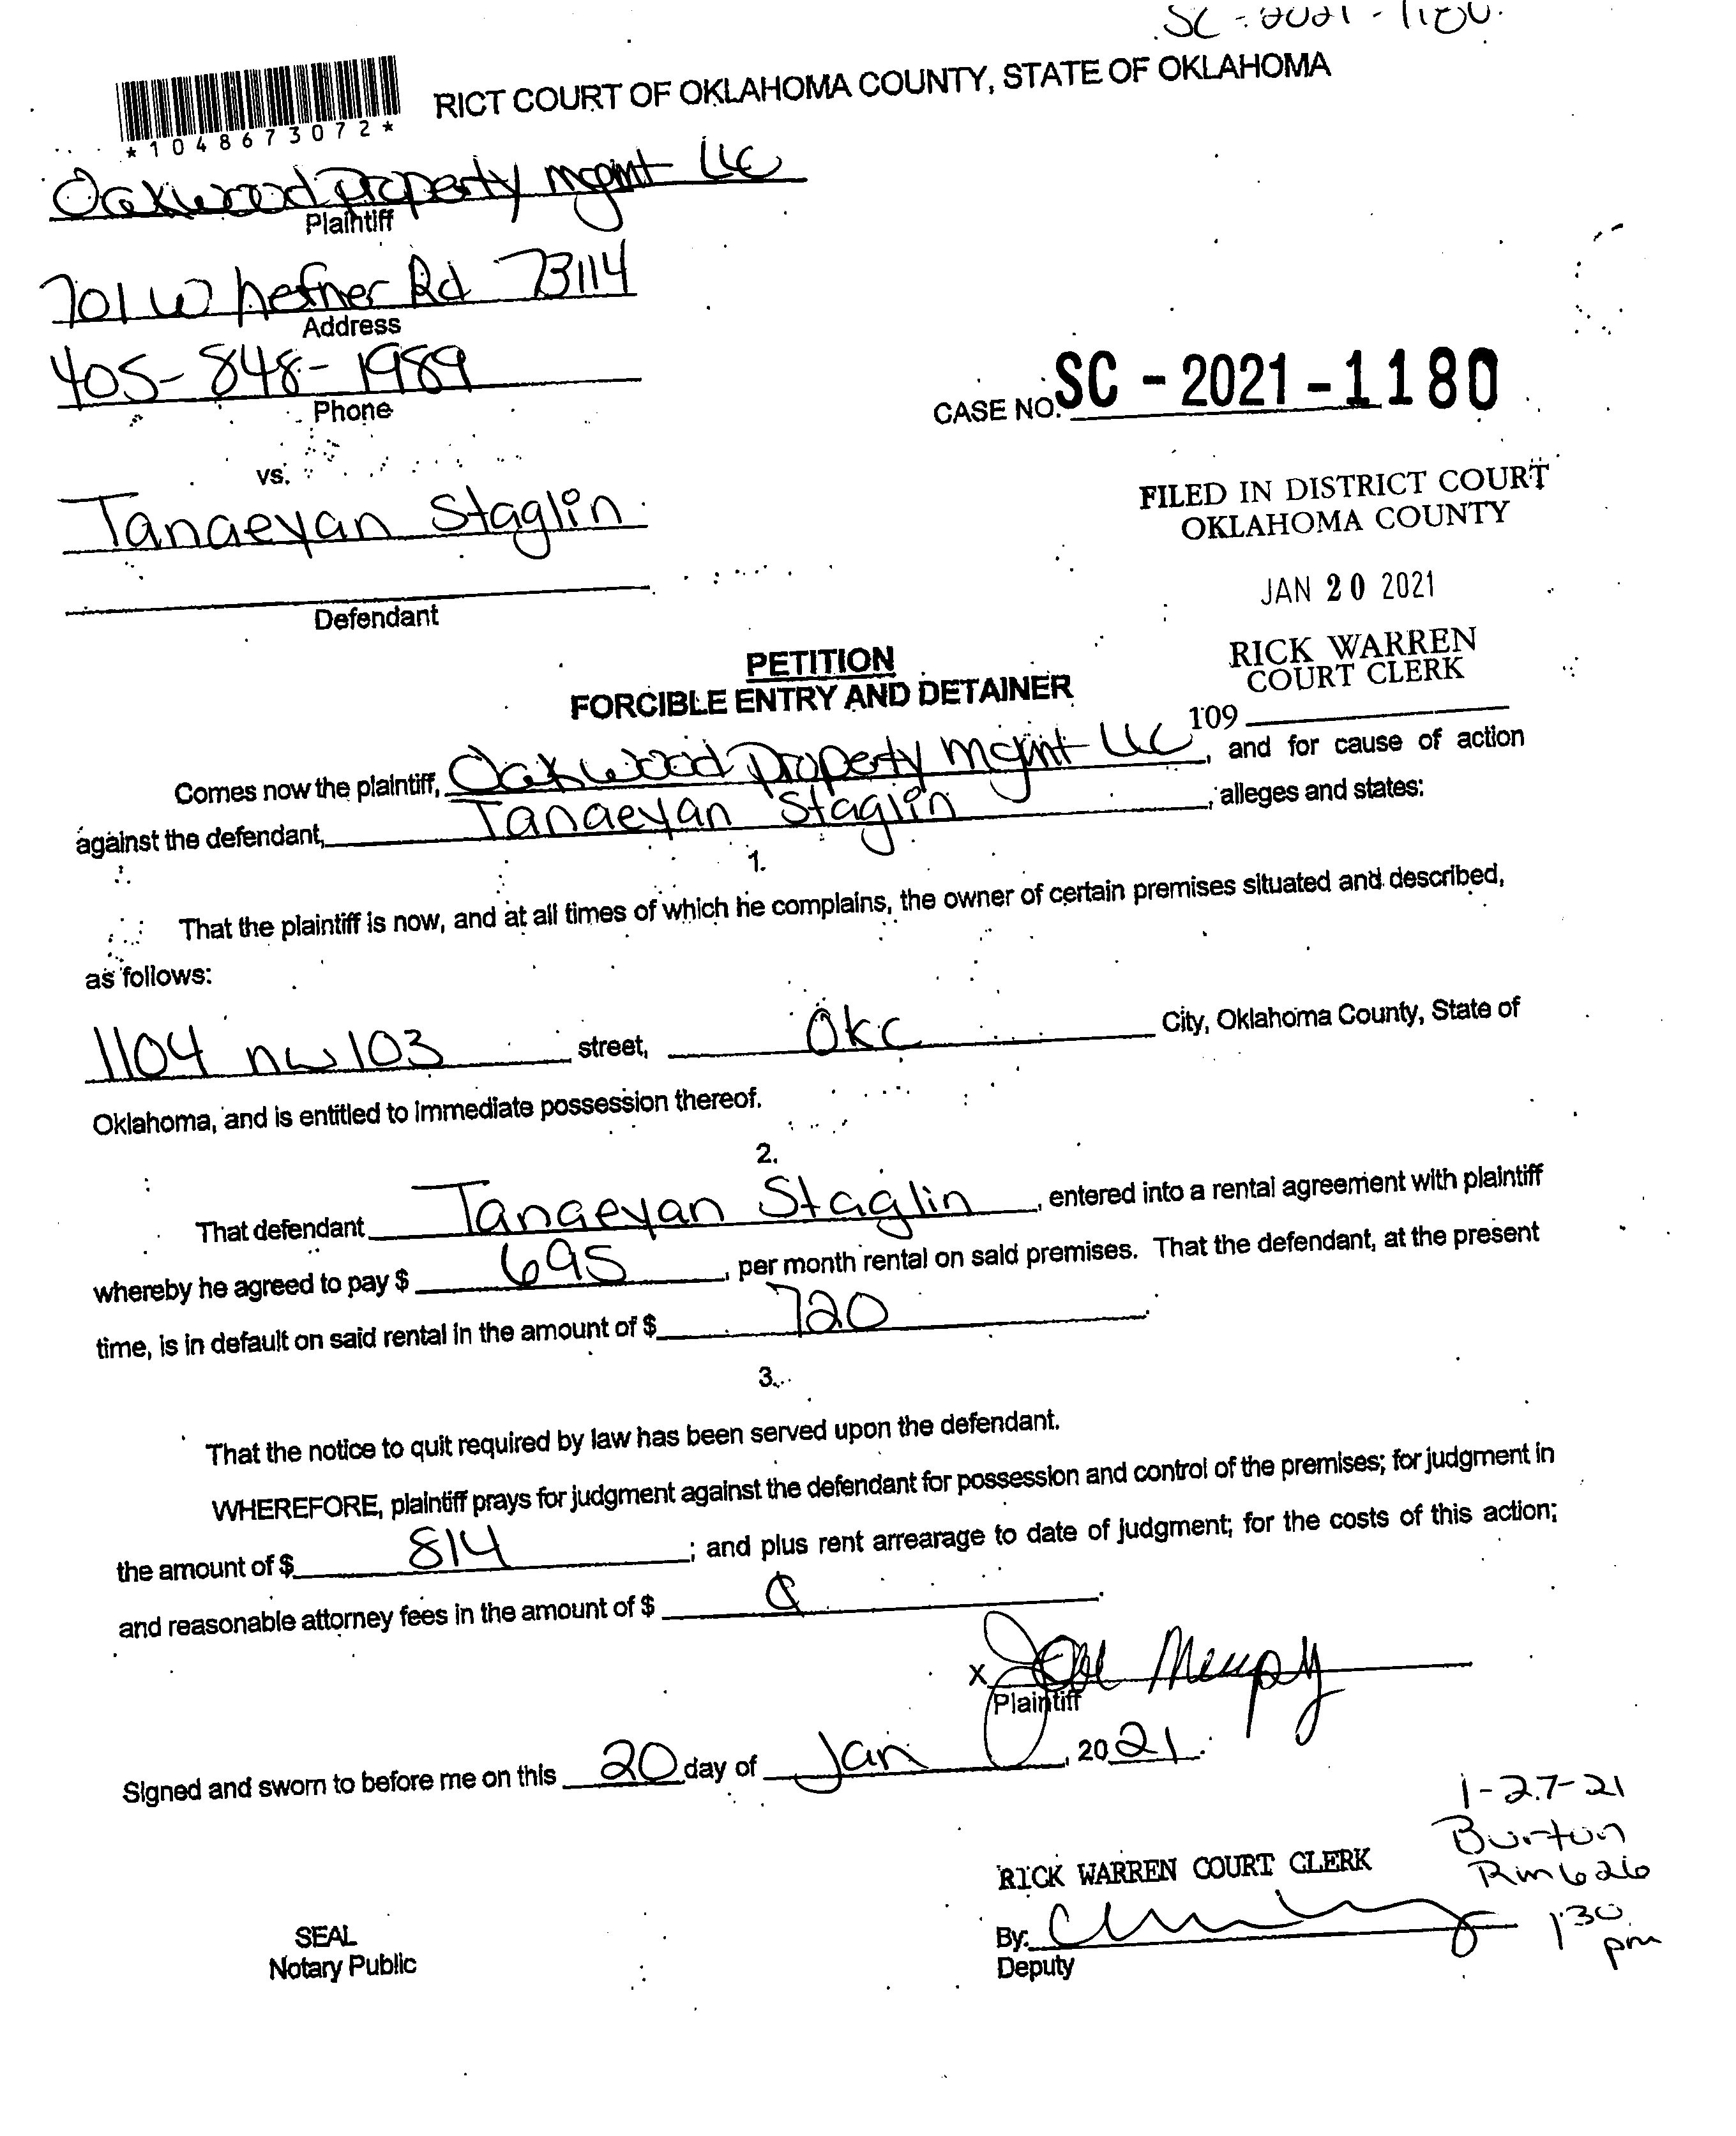 SC-2021-1180
RICT COURT OF OKLAHOMA COUNTY, STATE OF OKLAHOMA
*1048673072*
Oakwood Property mgmt LLC
Plaintiff
701 W hefner Rd 73114
Address
405-848-1989
Phone
CASE NO. SC-2021-1180
vs.
Tanaeyan Staglin
Defendant
FILED IN DISTRICT COURT
OKLAHOMA COUNTY
JAN 20 2021
RICK WARREN
COURT CLERK
109
PETITION
FORCIBLE ENTRY AND DETAINER
Comes now the plaintiff, Oakwood Property mgmt LLC, and for cause of action
against the defendant, Tanaeyan Staglin, alleges and states:
1.
That the plaintiff is now, and at all times of which he complains, the owner of certain premises situated and described,
as follows:
1104 nw 103 street, OKC City, Oklahoma County, State of
Oklahoma, and is entitled to immediate possession thereof.
2.
That defendant Tanaeyan Staglin, entered into a rental agreement with plaintiff
whereby he agreed to pay $ 695, per month rental on said premises. That the defendant, at the present
time, is in default on said rental in the amount of $ 720.
3.
That the notice to quit required by law has been served upon the defendant.
WHEREFORE, plaintiff prays for judgment against the defendant for possession and control of the premises; for judgment in
the amount of $ 814; and plus rent arrearage to date of judgment; for the costs of this action;
and reasonable attorney fees in the amount of $
X
Plaintiff
Signed and sworn to before me on this 20 day of Jan, 2021.
1-27-21
Burton
Rm 626
1:30
pm
RICK WARREN COURT CLERK
By:
Deputy
SEAL
Notary Public